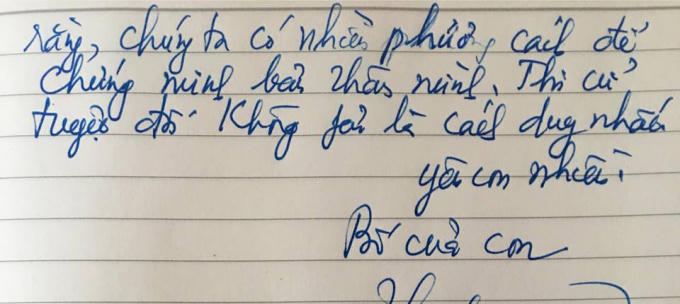 rằng, chúng ta có nhiều phương cách để
chứng minh bản thân mình. Thi cử
tuyệt đối không fải là cách duy nhất
yêu con nhiều!
Bố của con